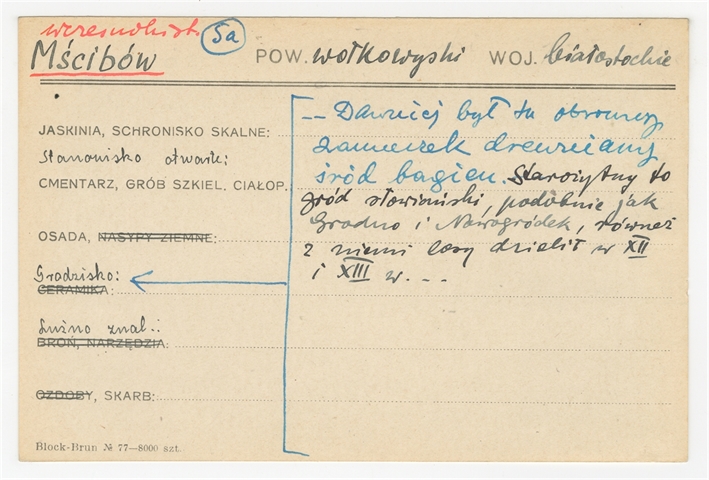 wczesnohist.
5a
Mścibów POW. wołkowyski WOJ. białostockie
JASKINIA, SCHRONISKO SKALNE:
Stanowisko otwarte:
CMENTARZ, GRÓB SZKIEL. CIAŁOP.
OSADA, NASYPY ZIEMNE:
Grodzisko:
CERAMIKA:
Luźno znal.:
BROŃ, NARZĘDZIA:
OZDOBY, SKARB:
Block-Brun № 77—8000 szt.
— Dawniej był tu obronny
zameczek drewniany
śród bagien. Starożytny to
gród słowiański, podobnie jak
Grodno i Nowogródek, również
z niemi losy dzielił w XII
i XIII w. . . .